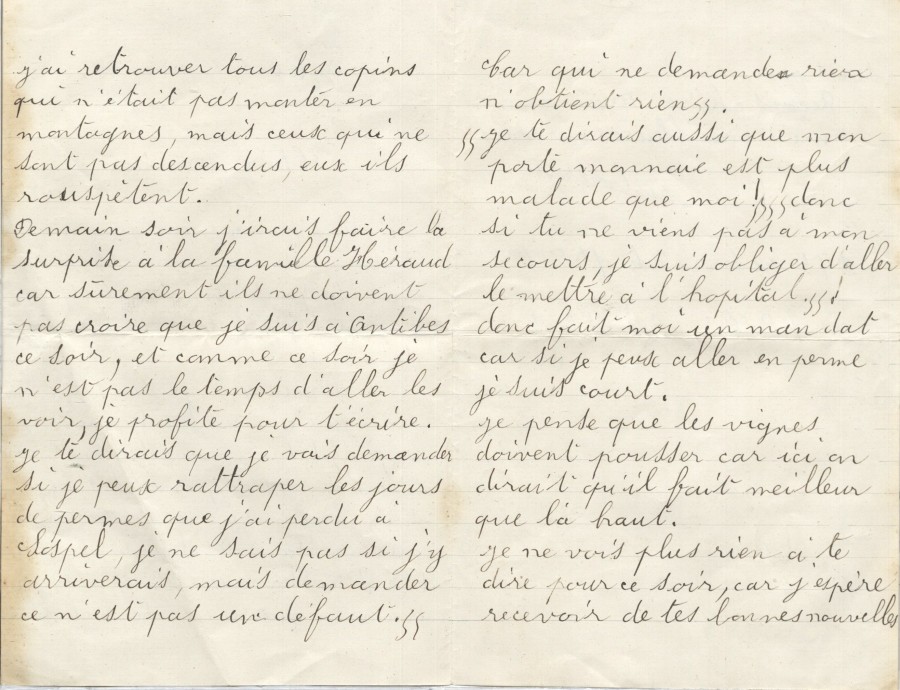 j'ai retrouver tous les copins
qui n'était pas montér en
montagnes, mais ceux qui ne
sont pas descendus, eux ils
rouspètent.
Demain soir j'irais faire la
surprise à la famille Héraud
car sûrement ils ne doivent
pas croire que je suis à Antibes
ce soir, et comme ce soir je
n'est pas le temps d'aller les
voir, je profite pour t'écrire.
Je te dirais que je vais demander
si je peux rattraper les jours
de permes que j'ai perdu à
Sospel, je ne sais pas si j'y
arriverais, mais demander
ce n'est pas un défaut.
Car qui ne demande rien
n'obtient rien.
Je te dirais aussi que mon
porte monnaie est plus
malade que moi! donc
si tu ne viens pas à mon
secours, je suis obliger d'aller
le mettre à l'hopital.!
donc fait moi un mandat
car si je peux aller en perme
je suis court.
Je pense que les vignes
doivent pousser car ici on
dirait qu'il fait meilleur
que là haut.
Je ne vois plus rien à te
dire pour ce soir, car j'espère
recevoir de tes bonnes nouvelles